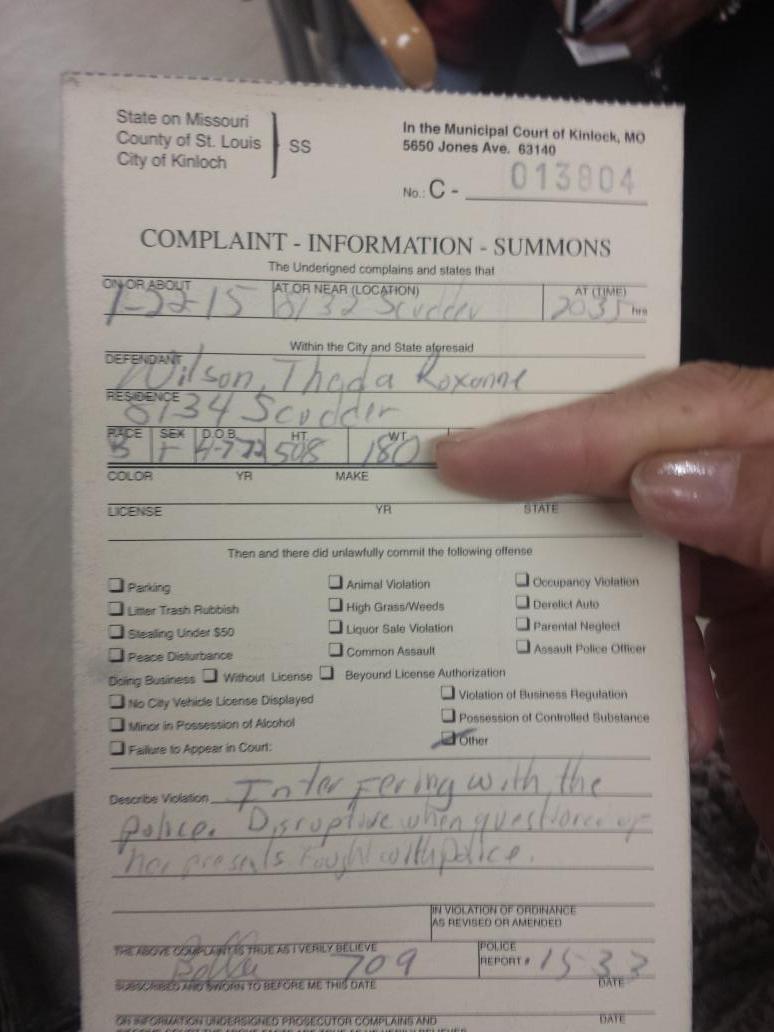 State on Missouri
County of St. Louis
City of Kinloch
SS
In the Municipal Court of Kinlock, MO
5650 Jones Ave. 63140
No.: C - 013804
COMPLAINT - INFORMATION - SUMMONS
The Underigned complains and states that
ON OR ABOUT AT OR NEAR (LOCATION) AT (TIME)
1-22-15 8132 Scudder 2035 hrs
Within the City and State aforesaid
DEFENDANT
Wilson, Theda Roxanne
RESIDENCE
8134 Scudder
RACE SEX D.O.B. HT. WT.
B F 4-7-72 508 180
COLOR YR MAKE
LICENSE YR STATE
Then and there did unlawfully commit the following offense
Parking Animal Violation Occupancy Violation
Litter Trash Rubbish High Grass/Weeds Derelict Auto
Stealing Under $50 Liquor Sale Violation Parental Neglect
Peace Disturbance Common Assault Assault Police Officer
Doing Business Without License Beyound License Authorization
No City Vehicle License Displayed Violation of Business Regulation
Minor in Possession of Alcohol Possession of Controlled Substance
Failure to Appear in Court: Other
Describe Violation Interfering with the
police. Disruptive when questioned of
her presents fought with police.
IN VIOLATION OF ORDINANCE
AS REVISED OR AMENDED
THE ABOVE COMPLAINT IS TRUE AS I VERILY BELIEVE
709
POLICE
REPORT # 1533
SUBSCRIBED AND SWORN TO BEFORE ME THIS DATE DATE
ON INFORMATION UNDERSIGNED PROSECUTOR COMPLAINS AND DATE